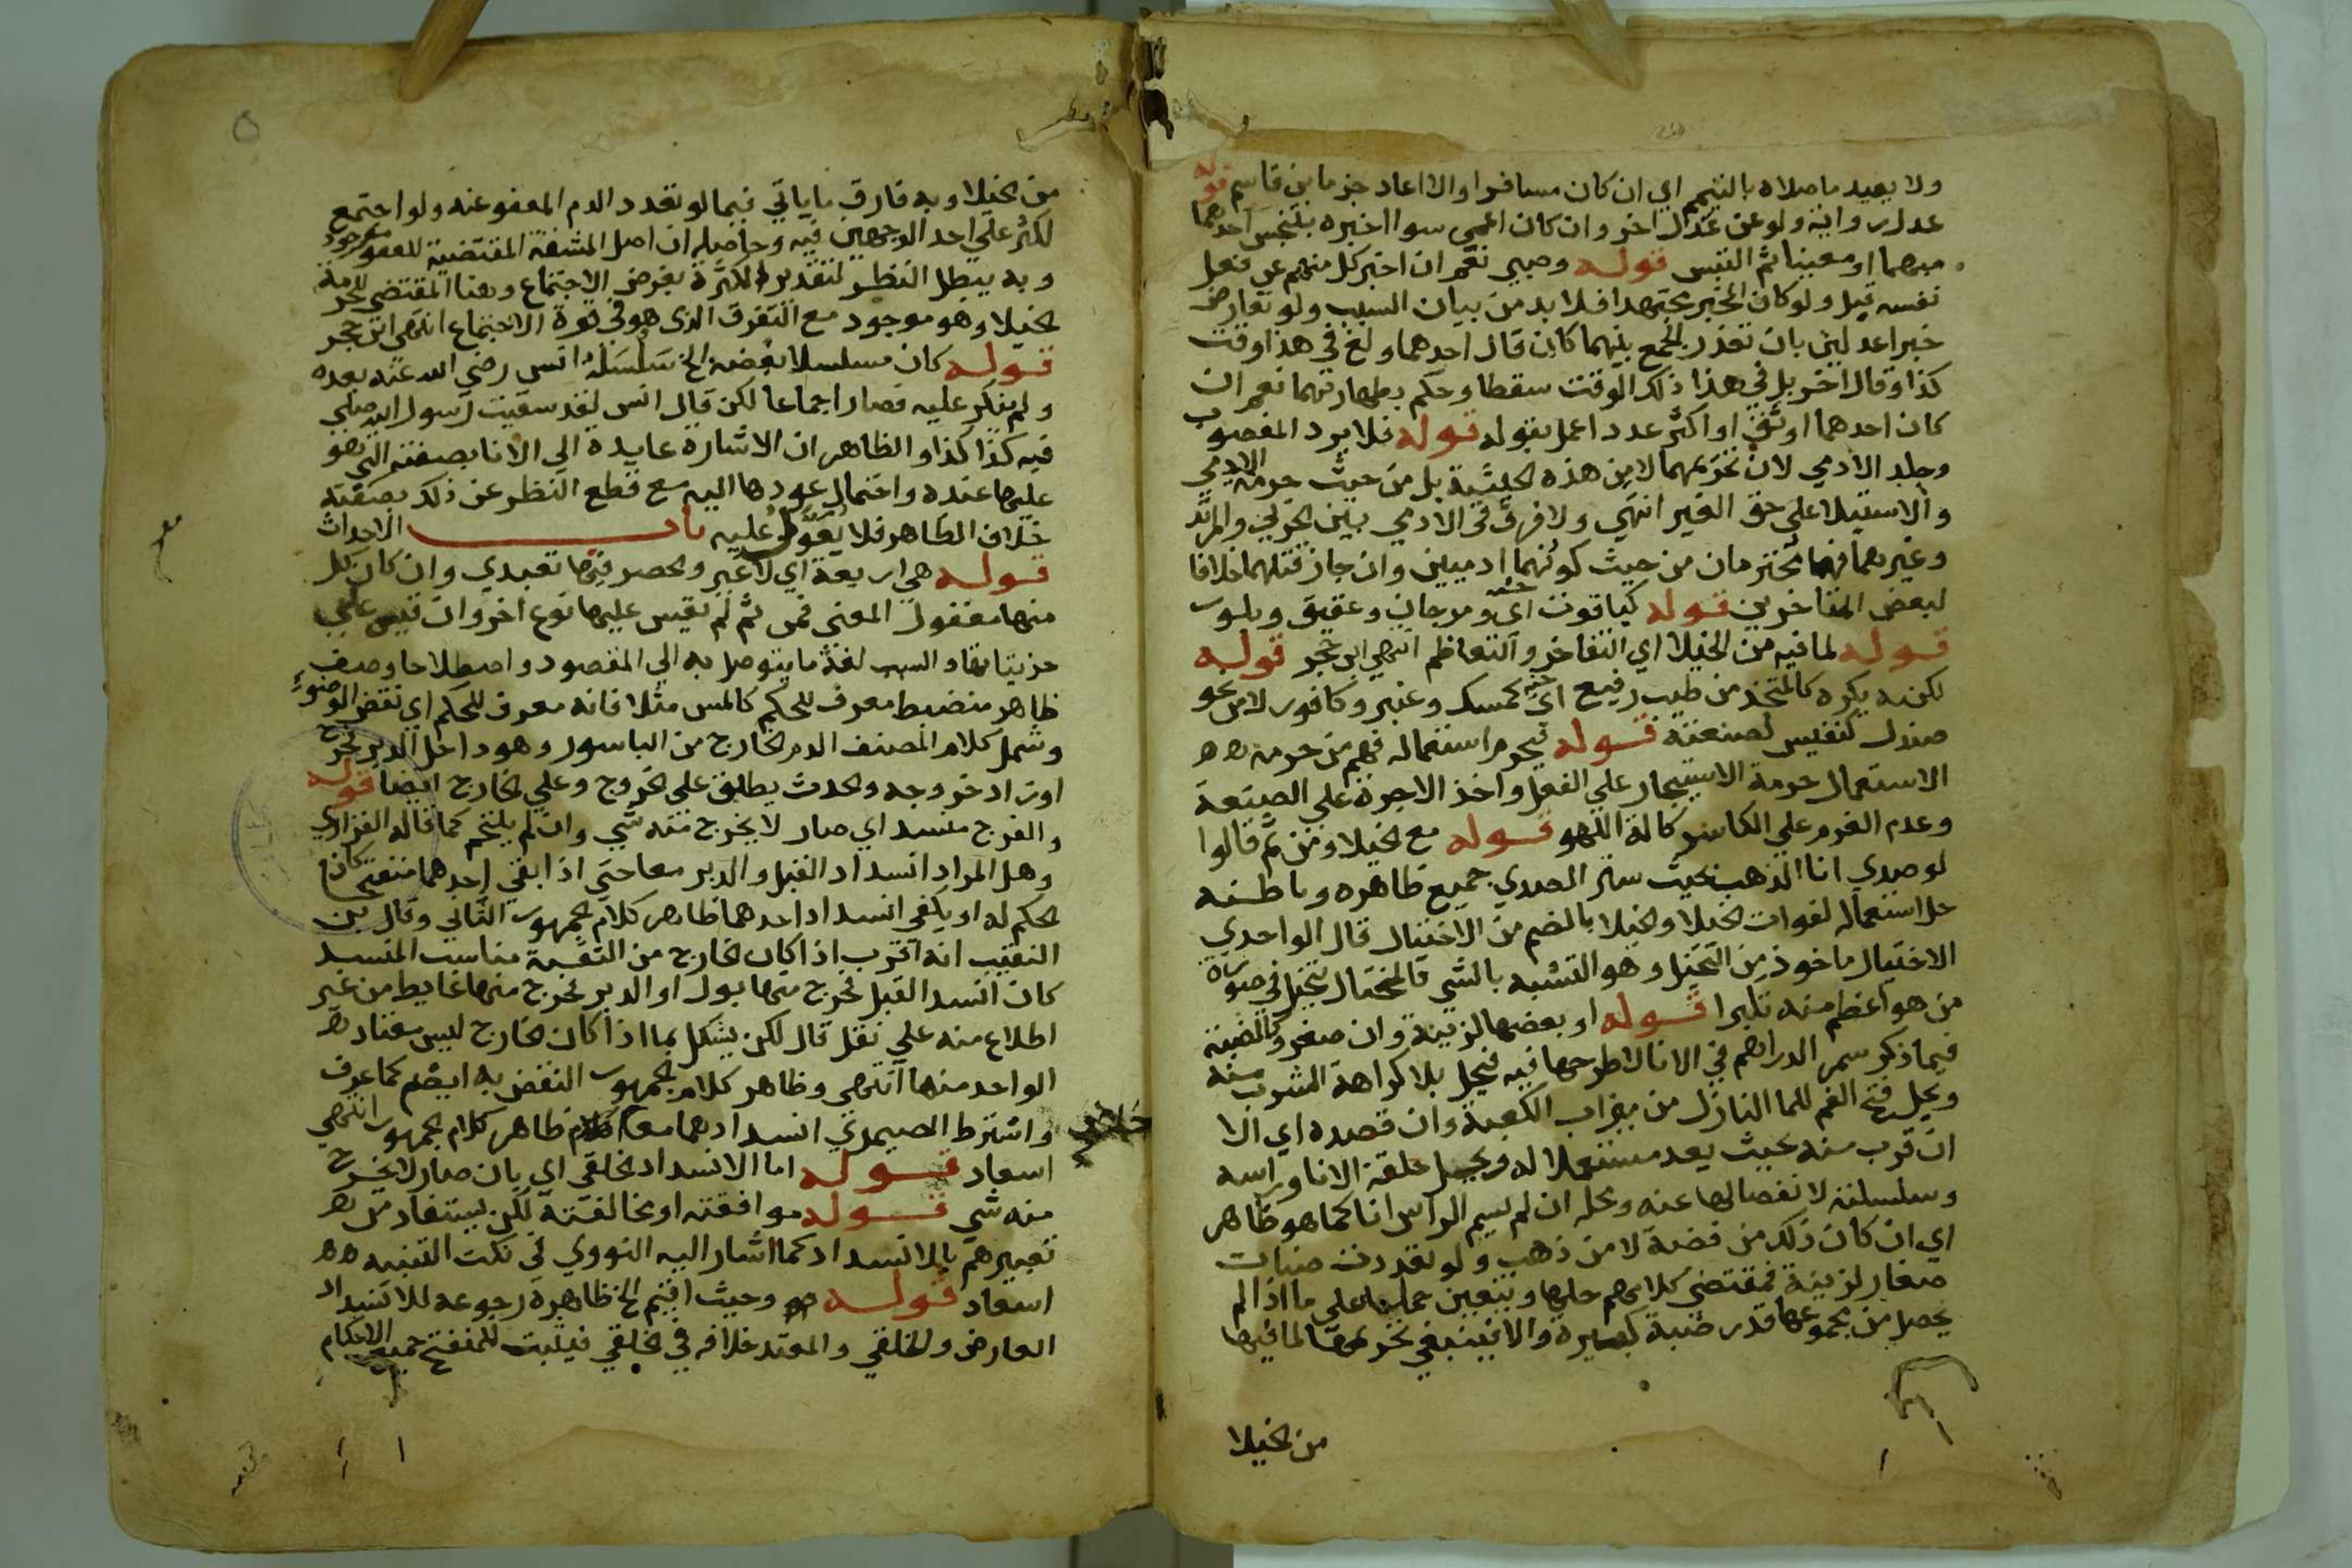 ولا يعيد ما صلاه بالتيمم اي ان كان مسافرا والا اعاد جزما بن قاسم قوله
عدل رواية ولو عن عدل اخر وان كان اعمى سوا اخبره بتنجس احدهما
مبهما او معينا ثم التبس قوله وصبي نعم ان اخبر كل منهم عن فعل
نفسه قبل ولو كان المخبر مجتهدا فلا بد من بيان السبب ولو تعارض
خبرا عدلين بان تعذر الجمع بينهما كان قال احدهما ولغ في هذا وقت
كذا وقال اخر بل في هذا ذلك الوقت سقطا وحكم بطهارتهما نعم ان
كان احدهما اوثق او اكثر عددا عمل بقوله قوله فلا يرد المغصوب
وجلد الادمي لان تحريمهما لا من هذه الحيثية بل من حيث حرمة الادمي
والاستيلا على حق الغير انتهي ولا فرق في الادمي بين الحربي والمرتد
وغيرهما فهما محترمان من حيث كونهما ادميين وان جاز قتلهما خلافا
لبعض المتاخرين قوله كياقوت اي ومرجان وعقيق وبلور
قوله لما فيه من الخيلا اي التفاخر والتعاظم انتهي ابن حجر قوله
لكنه يكره كالمتخذ من طيب رفيع اي كمسك وعنبر وكافور لا من نحو
صندل كنفيس لصنعته قوله فيحرم استعماله فهم من حرمة
الاستعمال حرمة الاستيجار علي الفعل واخذ الاجرة علي الصنعة
وعدم الغرم علي الكاسر كالة اللهو قوله مع الخيلا ومن ثم قالوا
لو صدي انا الذهب بحيث ستر الصدي جميع ظاهره وباطنه
حل استعماله لفوات الخيلا والخيلا بالضم من الاختيال قال الواحدي
الاختيال ماخوذ من التخيل وهو التشبه بالشي فالمختال يتخيل في صورة
من هو اعظم منه تكبرا قوله او بعضها لزينة وان صغر وكالضبة
فيما ذكر سمر الدراهم في الانا لا طرحها فيه فيحل بلا كراهة الشرب منه
ويحل فتح الفم للما النازل من ميزاب الكعبة وان قصده اي الا
ان قرب منه بحيث يعد مستعملا له ويحل حلقة الانا وراسه
وسلسلته لانفصالها عنه ومحله ان لم يسم الراس انا كما هو ظاهر
اي ان كان ذلك من فضة لا من ذهب ولو تعددت ضبات
صغار لزينة فمقتضي كلامهم حلها ويتعين حملها علي ما اذا لم
يحصل من مجموعها قدر ضبة كبيرة والا فينبغي تحريمها لما فيها
من الخيلا
من الخيلا وبه فارق ما ياتي فيما لو تعدد الدم المعفو عنه ولو اجتمع
لكثر علي احد الوجهين فيه وحاصله ان اصل المشقة المقتضية للعفو موجود
وبه يبطل النظر لتقدير الكثرة بفرض الاجتماع وهنا المقتضي للحرمة
الخيلا وهو موجود مع التفرق الذي هو في قوة الاجتماع انتهي ابن حجر
قوله كان مسلسلا بفضة الخ سلسله انس رضي الله عنه بعده
ولم ينكر عليه فصار اجماعا لكن قال انس لقد سقيت رسول الله صلي
فيه كذا كذا والظاهر ان الاشارة عايدة الي الانا بصفته التي هو
عليها عنده واحتمال عودها اليه مع قطع النظر عن ذلك بصفته
خلاف الظاهر فلا يعول عليه باب الاحداث
قوله هي اربعة اي لا غير والحصر فيها تعبدي وان كان كل
منها معقول المعنى فمن ثم لم يقس عليها نوع اخر وان قيس علي
جزيتايها والسبب لغة ما يتوصل به الي المقصود واصطلاحا وصف
ظاهر منضبط معرف للحكم كالمس مثلا فانه معرف للحكم اي نقض الوضوء
وشمل كلام المصنف الدم الخارج من الباسور وهو داخل الدبر لخرج
او زاد خروجه والحدث يطلق علي الخروج وعلي الخارج ايضا قوله
والفرج منسد اي صار لا يخرج منه شي وان لم يلتحم كما قاله الفزاري
وهل المراد انسداد القبل والدبر معا حتي اذا بقي احدهما منفتح كان
الحكم له او يكفي انسداد احدهما ظاهر كلام الجمهور الثاني وقال بن
النقيب انه اقرب اذا كان الخارج من الثقبة مناسب المنسد
كان انسد القبل فخرج منها بول او الدبر فخرج منها غايط من غير
اطلاع منه علي نقل قال لكن يشكل بما اذا كان الخارج ليس معتاد
الواحد منهما انتهي وظاهر كلام الجمهور النقض به ايضم كما عرف
واشترط الصيمري انسدادهما معا ظاهر كلام الجمهور انتهي
اسعاد قوله اما الانسداد الخلقي اي بان صار لا يخرج
منه شي قوله موافقته او مخالفته لكن يستفاد من
تعبيرهم بالانسداد كما اشار اليه النووي في نكت التنبيه
اسعاد قوله وحيث اقيم الخ ظاهره رجوعه للانسداد
العارض والخلقي والمعتمد خلافه في الخلقي فيثبت للمنفتح جميع الاحكام